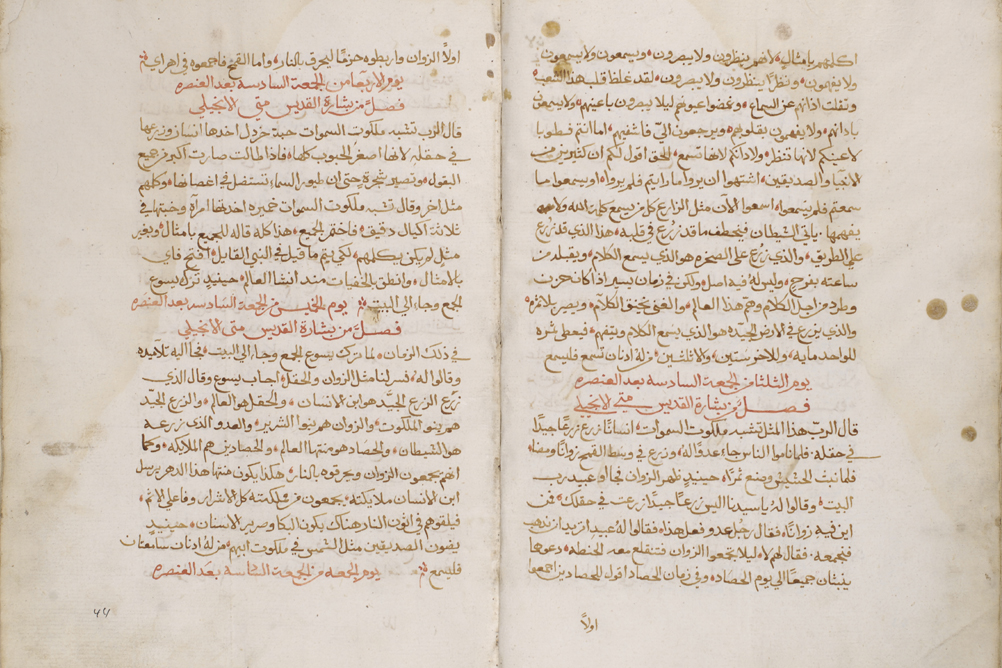 اكلمهم بامثال لانهم ينظرون ولا يبصرون ويسمعون ولا يسمعون
ولا يفهمون ونظرًا ينظرون ولا يبصرون لقد غلظ قلب هذا الشعب
وثقلت اذانهم عن السماع وغمضوا عيونهم ليلا يبصرون باعينهم ولا يسمعون
باذانهم ولا يفهمون بقلوبهم ويرجعون اليّ فاشفيهم اما انتم فطوبا
لاعينكم لانها تنظر ولاذانكم لانها تسمع الحق اقول لكم ان كثيرين من
الانبيا والصديقين اشتهوا ان يروا ما رايتم فلم يروا او يسمعوا ما
سمعتم فلم يسمعوا اسمعوا الآن مثل الزارع كل من يسمع كلمة الله ولا
يفهمها ياتي الشيطان فيخطف ما قد زرع في قلبه هذا الذي قد زرع
علي الطريق والذي زرع علي الصخره هو الذي يسمع الكلام ويقبله من
ساعته بفرح وليس له فيه اصل ولكن في زمان يسير اذا كان حزن
وطرد من اجل الكلام وهم هذا العالم والغني يخنق الكلام ويصير بلا ثمره
والذي يزرع في الارض الجيده هو الذي يسمع الكلام ويتفهم فيعطي ثمره
للواحد مايه وللاخر ستين ولا ثلثين من له اذنان تسمع فليسمع
يوم الثلثا من الجمعة السادسة بعد العنصره
فصل من بشارة القديس متي الانجيلي
قال الرب هذا المثل تشبه ملكوت السموات انسانًا زرع زرعًا جيدًا
في حقله فلما ناموا الناس جاء عدوّ له وزرع في وسط القمح زوانًا ومضا
فلما نبت الحشيش وصنع ثمرًا حينيذٍ ظهر الزوان فجاوا عبيد رب
البيت وقالوا له يا سيدنا اليس زرعًا جيدًا زرعت في حقلك فمن
اين فيه زوانًا فقال رجل عدو فعل هذا فقالوا له عبيد اتريد ان نذهب
فنجمعه فقال لهم لا ليلا تجمعوا الزوان فتنقلع معه الحنطه دعوها
ينبتان جميعًا الي يوم الحصاده وفي زمان الحصاد اقول للحصادين اجمعوا
اولاً
اولاً الزوان واربطوه حزمًا ليحرق بالنار واما القمح فاجمعوه في اهراي
يوم الاربعا من الجمعة السادسة بعد العنصره
فصل من بشارة القديس متي الانجيلي
قال الرب تشبه ملكوت السموات حبة خردل اخدها انسان وزرعها
في حقله لانها اصغر الحبوب كلها فاذا طالت صارت اكبر من جميع
البقول وتصير شجرة حتى ان طيور السماء تستظل في اغصانها وكلمهم
مثل اخر وقال تشبه ملكوت السموات خميره اخدتها امرأه وخبتها في
ثلاثة اكيال دقيق فاختمر الجميع هذا كله قاله للجميع بامثال وبغير
مثل لم يكن يكلمهم لكي يتم ما قيل في النبي القايل افتح فاي
بالامثال وانطق بالخفيات منذ انشا العالم حينيذٍ ترك يسوع
الجمع وجاء الي البيت يوم الخميس من الجمعة السادسه بعد العنصره
فصل من بشارة القديس متى الانجيلي
في ذلك الزمان لما ترك يسوع الجمع وجاء الي البيت فجا اليه تلاميده
وقالوا له فسر لنا مثل الزوان والحقل اجاب يسوع وقال الذي
زرع الزرع الجيّد هو ابن الانسان والحقل هو العالم والزرع الجيد
هم بنوا الملكوت والزوان هم بنوا الشرير والعدو الذي زرعه
هو الشيطان والحصاد هو منتها العالم والحصادين هم الملايكه وكما
انهم يجمعون الزوان ويحرقوه بالنار هكذا يكون منتها هذا الدهر يرسل
ابن الانسان ملايكته يجمعون من مملكته كل الاشرار وفاعلي الاثم
فيلقوهم في اتون النار هناك يكون البكا وصرير الاسنان حينيذٍ
يضون الصديقين مثل الشمس في ملكوت ابيهم من له اذنان سامعتان
فليسمع يوم الجمعه من الجمعة السادسه بعد العنصره
٤٤